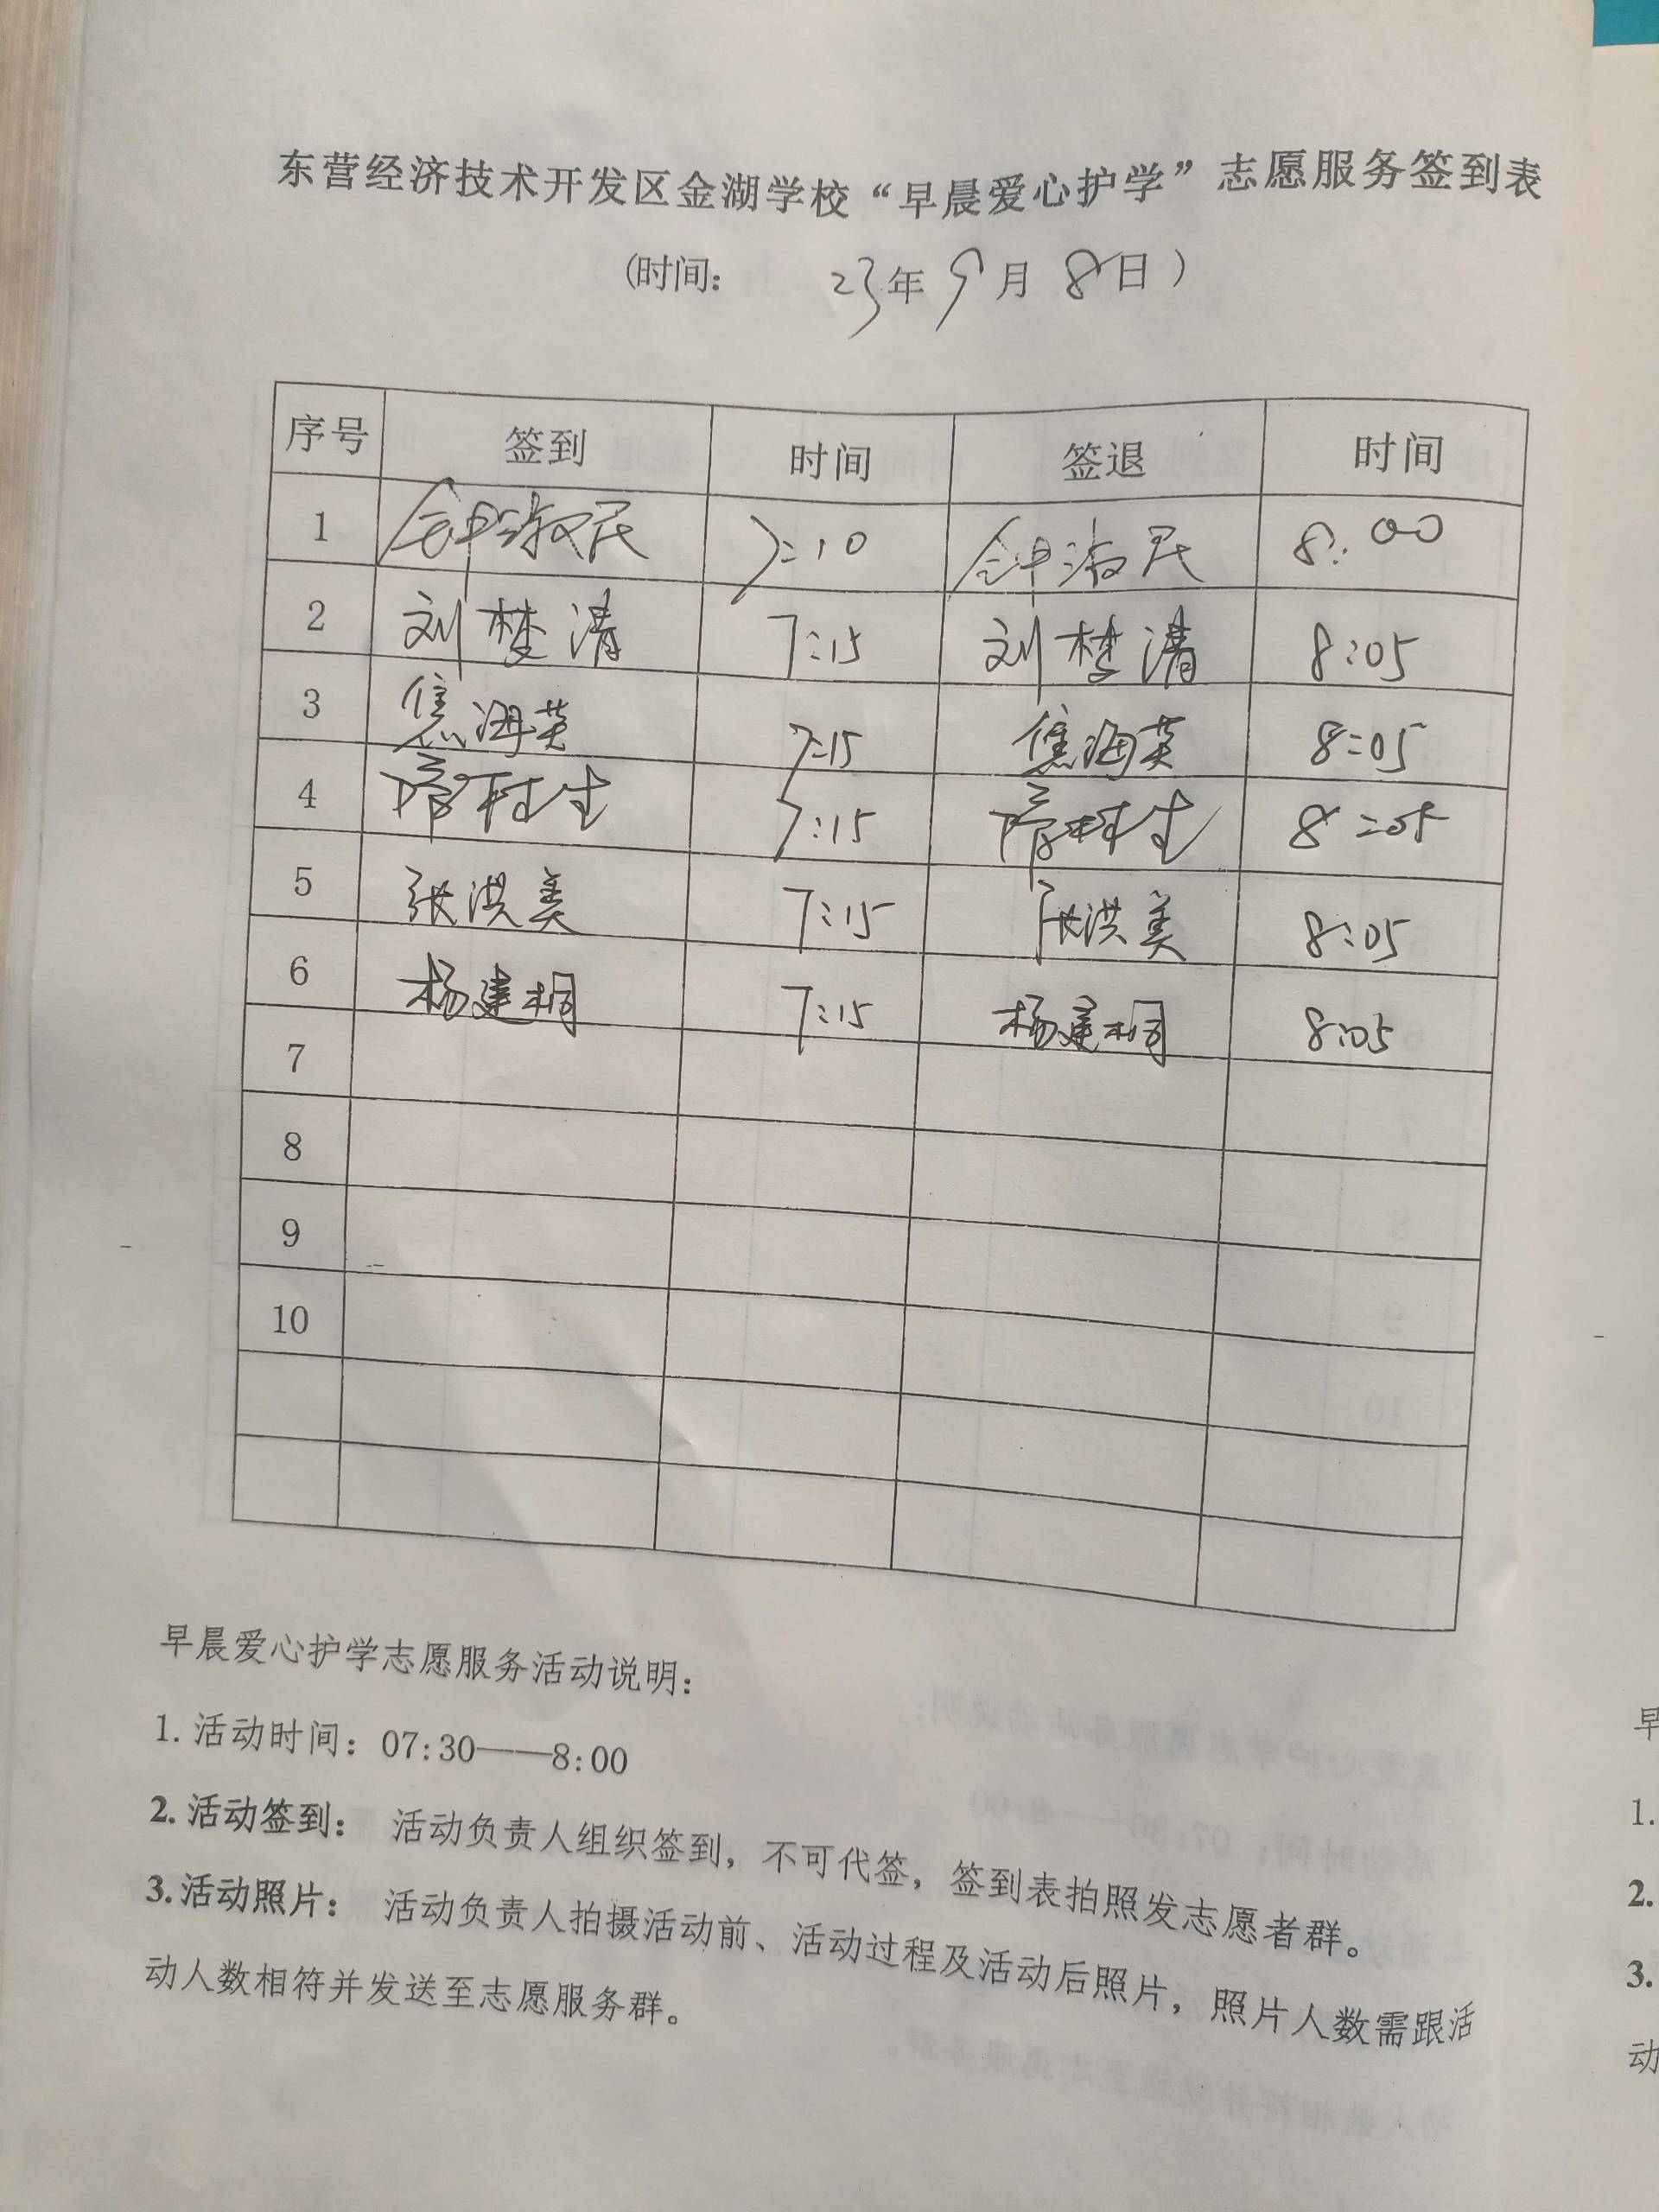 东营经济技术开发区金湖学校“早晨爱心护学”志愿服务签到表
(时间: 23年9月8日)
序号 签到 时间 签退 时间
1 钟淑民 7:10 钟淑民 8:00
2 刘梦清 7:15 刘梦清 8:05
3 焦海英 7:15 焦海英 8:05
4 7:15 8:05
5 张洪美 7:15 张洪美 8:05
6 杨建桐 7:15 杨建桐 8:05
7
8
9
10
早晨爱心护学志愿服务活动说明:
1. 活动时间: 07:30——8:00
2. 活动签到: 活动负责人组织签到, 不可代签, 签到表拍照发志愿者群。
3. 活动照片: 活动负责人拍摄活动前、活动过程及活动后照片, 照片人数需跟活
动人数相符并发送至志愿服务群。
早
1.
2.
3.
动